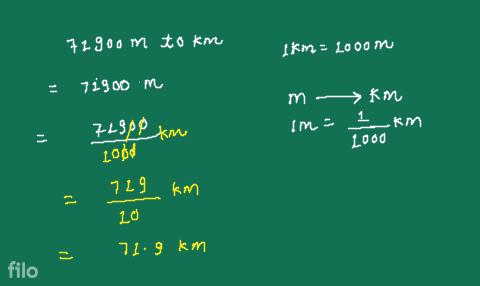 71900 m to km
1km = 1000m
= 71900 m
m → km
= 71900/1000 km
1m = 1/1000 km
= 719/10 km
= 71.9 km
filo